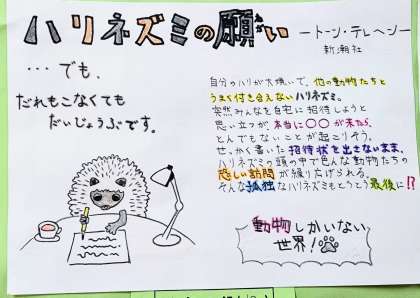 ハリネズミの願い
ートーン・テレヘンー
新潮社
…でも、
だれもこなくても
だいじょうぶです。
自分のハリが大嫌いで、他の動物たちと
うまく付き合えないハリネズミ。
突然みんなを自宅に招待しようと
思い立つが、本当に〇〇が来たら、
とんでもないことが起こりそう。
せっかく書いた招待状を出さないまま、
ハリネズミの頭の中で色んな動物たちの
恐しい訪問が繰り広げられる。
そんな孤独なハリネズミもとうとう最後に!?
動物しかいない
世界!